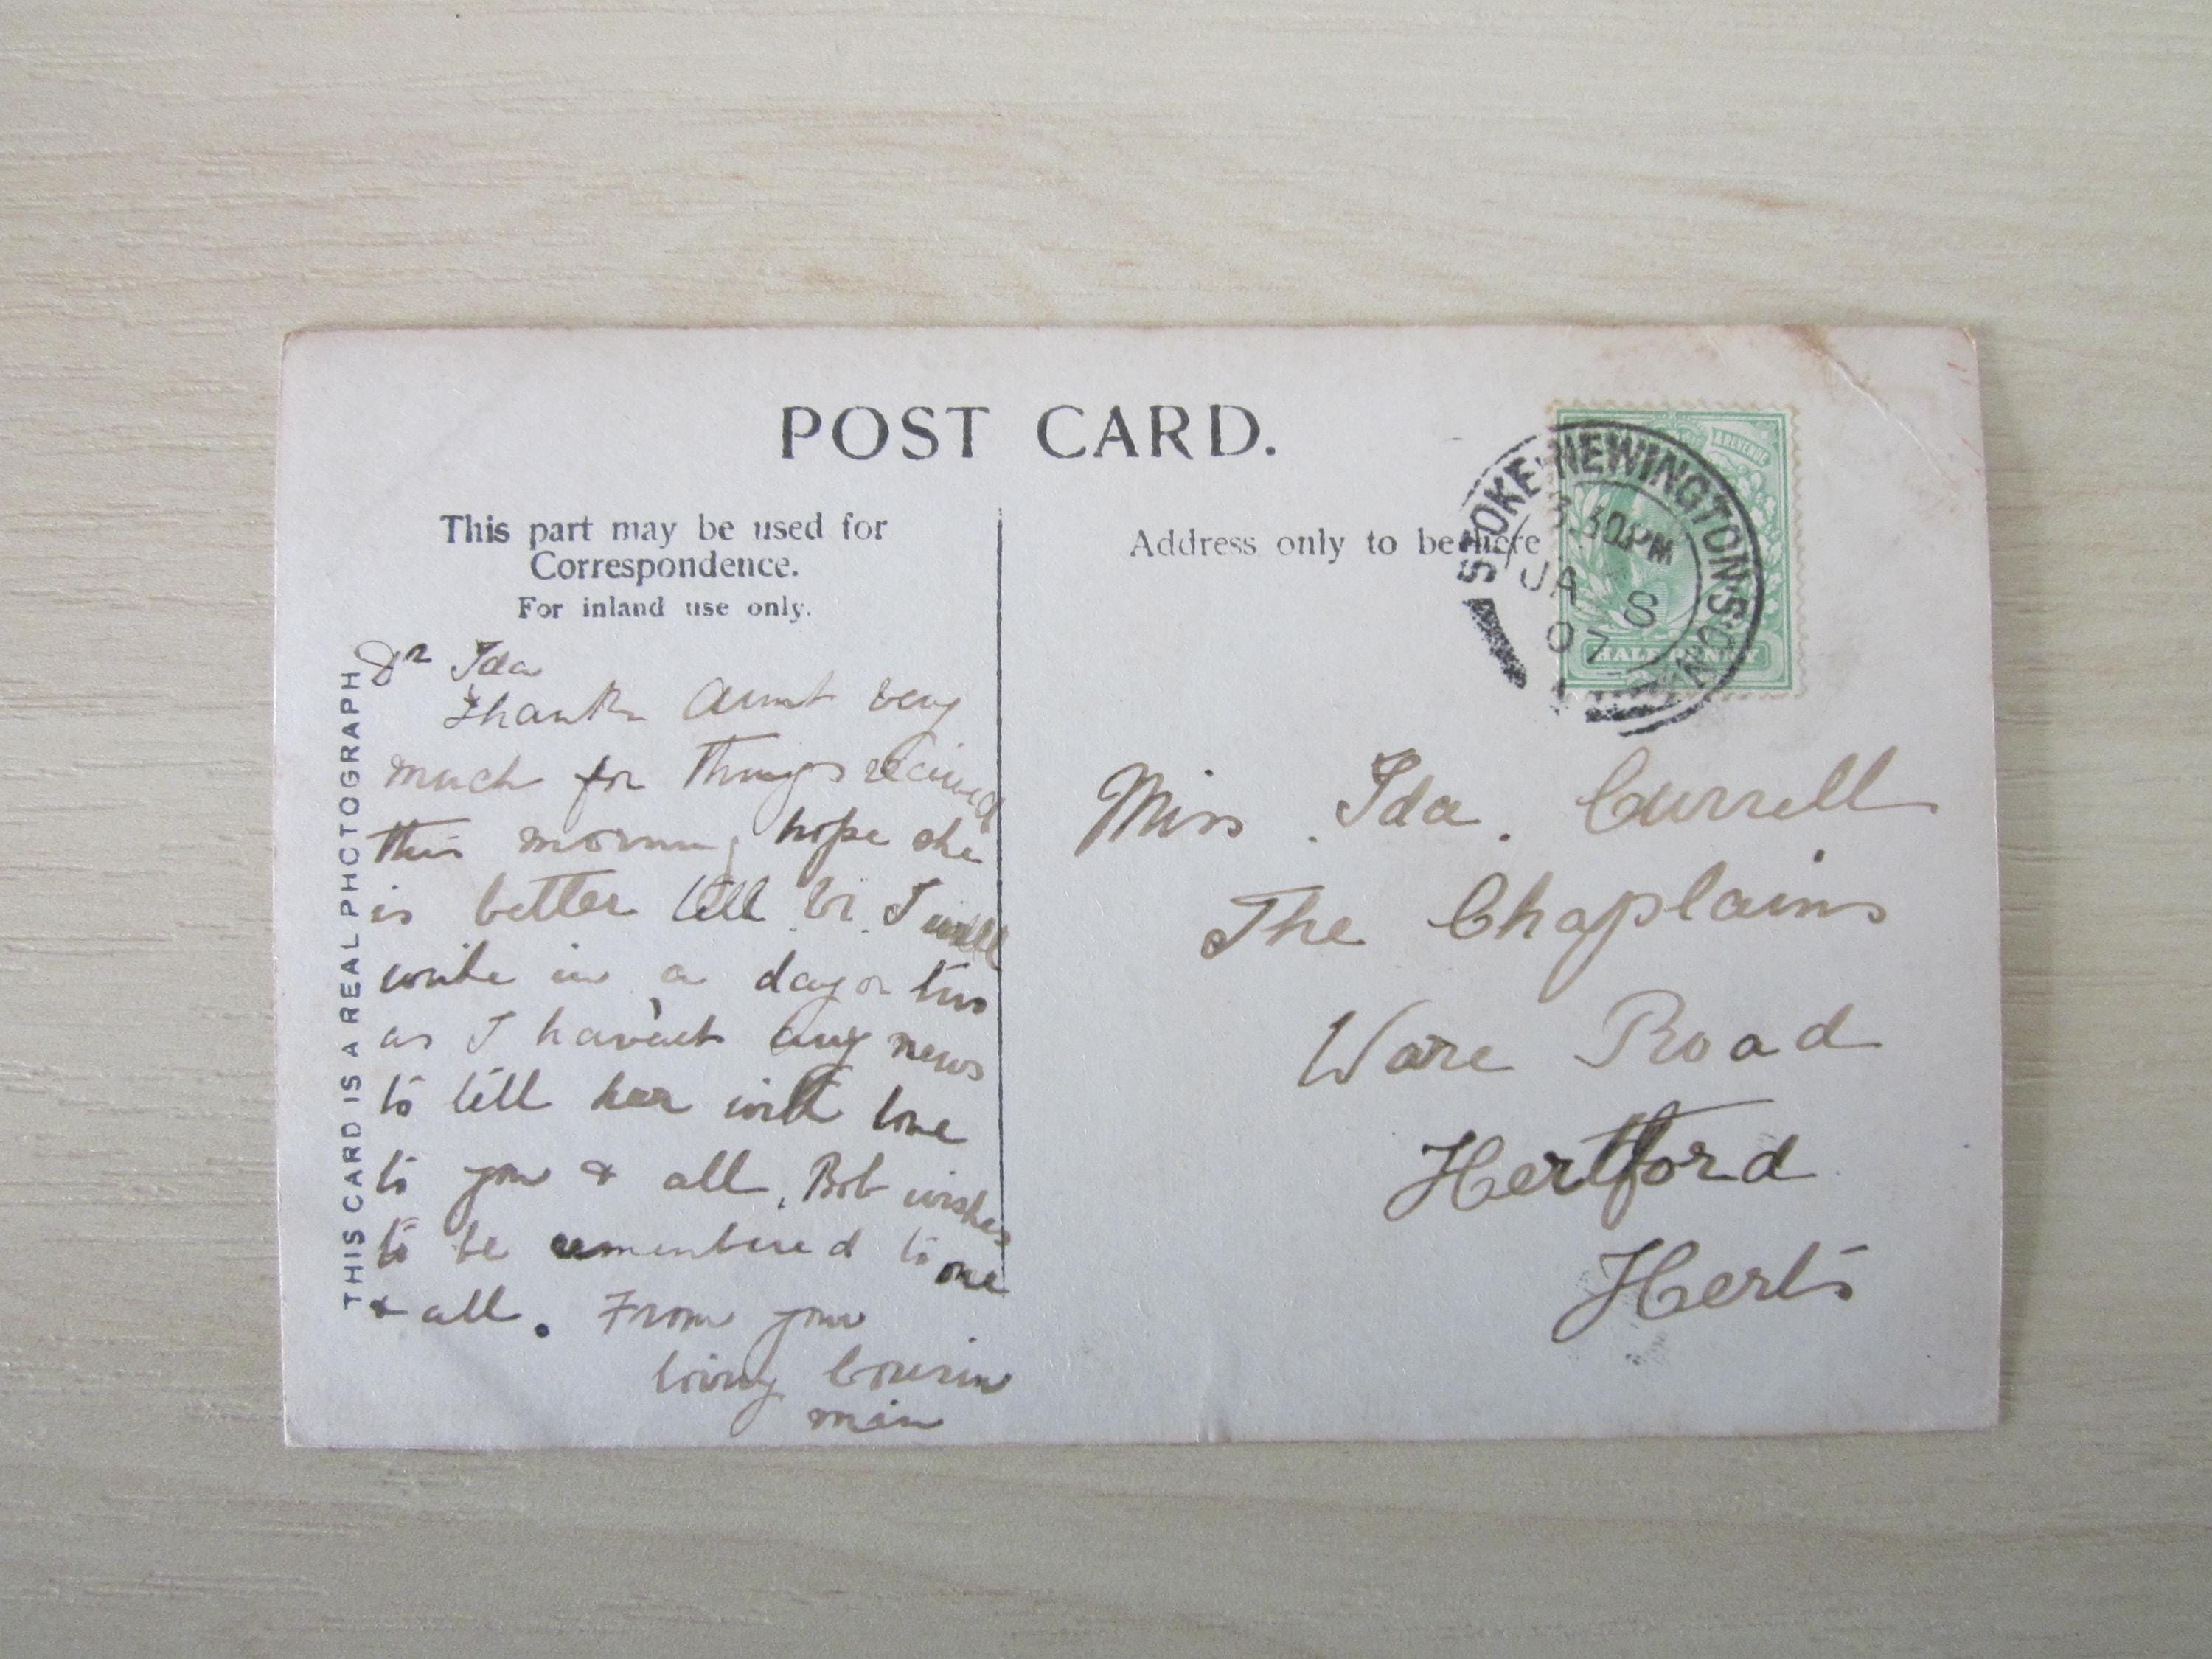 POST CARD.
This part may be used for
Correspondence.
For inland use only.
Address only to be here
STOKE NEWINGTON S.O. N
.30PM
JA 8
07
HALFPENNY
THIS CARD IS A REAL PHOTOGRAPH
Dr Ida
Thank Aunt very
much for things recieved
this morning hope she
is better tell her I will
write in a day or two
as I haven't any news
to tell her with love
to you & all. Bob wishes
to be remembered to one
& all. From your
loving Cousin
Miss . Ida . Currell
The Chaplains
Ware Road
Hertford
Herts